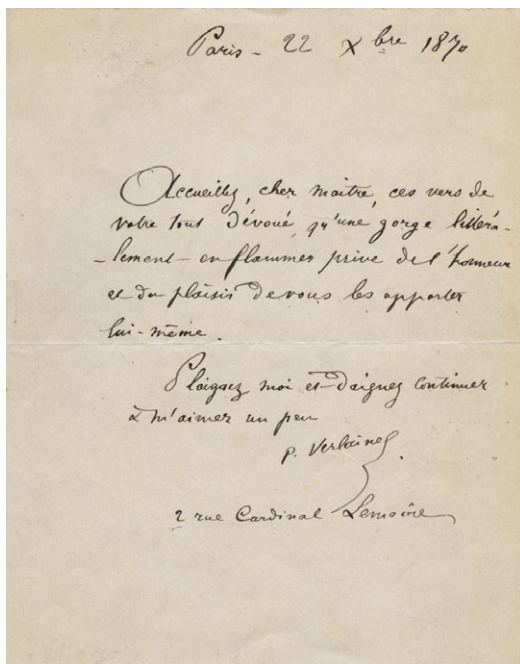 Paris - 22 Xbre 1870
Accueillez, cher maître, ces vers de
votre tout dévoué, qu'une gorge littéra-
-lement en flammes prive de l'honneur
et du plaisir de vous les apporter
lui-même.
Plaignez moi et daignez continuer
à m'aimer un peu
P. Verlaine.
2 rue Cardinal Lemoine